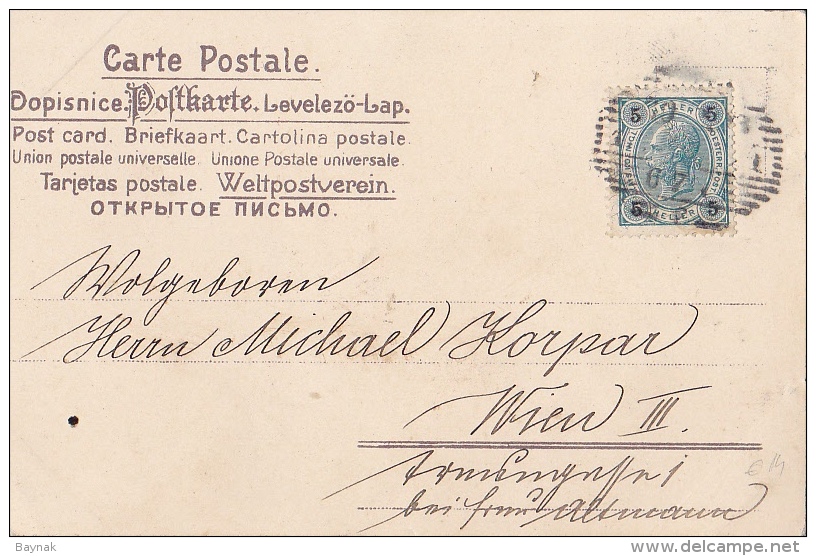 Carte Postale.
Dopisnice. Postkarte. Levelező-Lap.
Post card. Briefkaart. Cartolina postale.
Union postale universelle. Unione Postale universale.
Tarjetas postale. Weltpostverein.
ОТКРЫТОЕ ПИСЬМО.
5 HELLER 5
5 HELLER 5
6 7
Wolgeboren
Herrn Michael Korpar
Wien III.
1
bei Frau Altmann
Baynak
delcampe.net